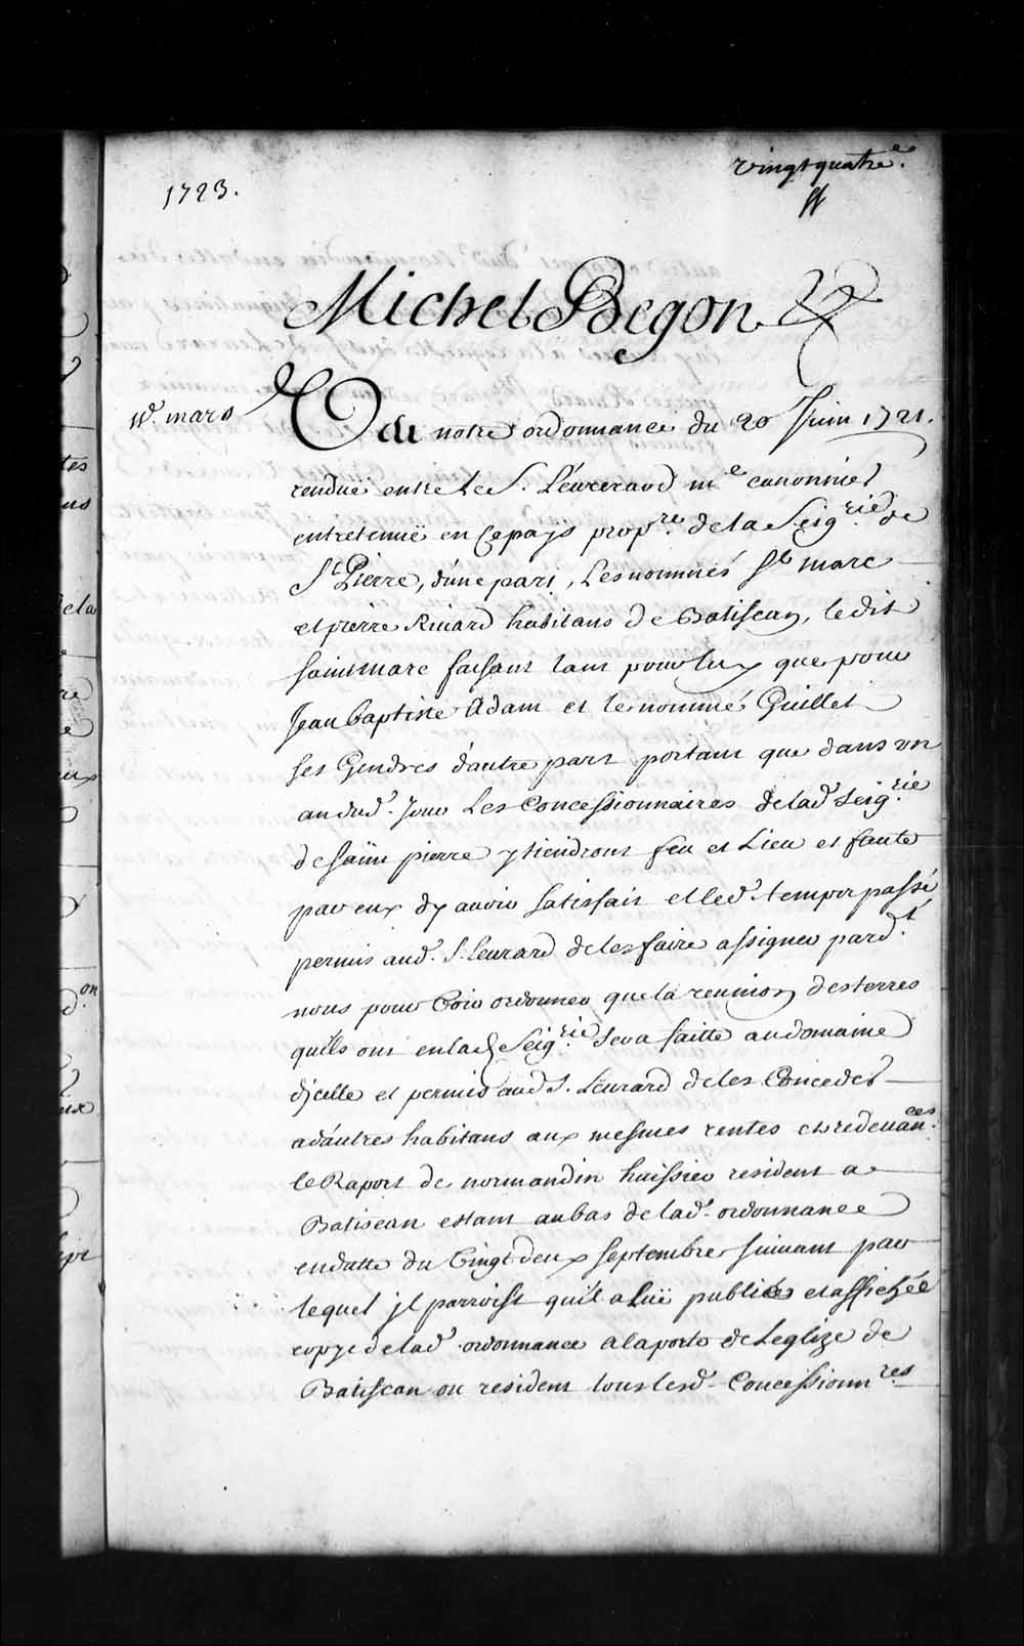 vingt quatre.e
1723.
Michel Begon
mars
Vu notre ordonnance du 20 Juin 1721.
renduë entre le S. Leureraud m.e canonnier
entretenuë en Ce pays prop.re de la Seig.rie de
St Pierre, d'une part, Les nommés St marc
et pierre Rivard habitans de Batiscan, le dit
saint marc faisant tant pour luy que pour
Jean baptiste Adam et le nommé Guillet
ses Gendres d'autre part portant que dans un
an dud. Jour Les Concessionnaires de lad. seig.rie
de saint pierre y tiendront feu et Lieu et faute
par eux d'y avoir satisfait et led. temps passé
permis aud. S. Leurard de les faire assigner pard.t
nous pour Voir ordonner que la reunion des terres
quils ont en lad. Seig.rie sera faitte au domaine
d'jcelle et permis aud. S. Leurard de les Conceder
a d'autres habitans aux mesmes rentes et redevan.ces
le Raport de normandin huissier resident a
Batiscan estant au bas de lad. ordonnance
en datte du Vingt deux septembre suivant par
lequel jl parroist qu'il a luë publiée et affichée
copye de lad. ordonnance a la porte de Leglize de
Batiscan ou resident tous lesd. Concessionn.res